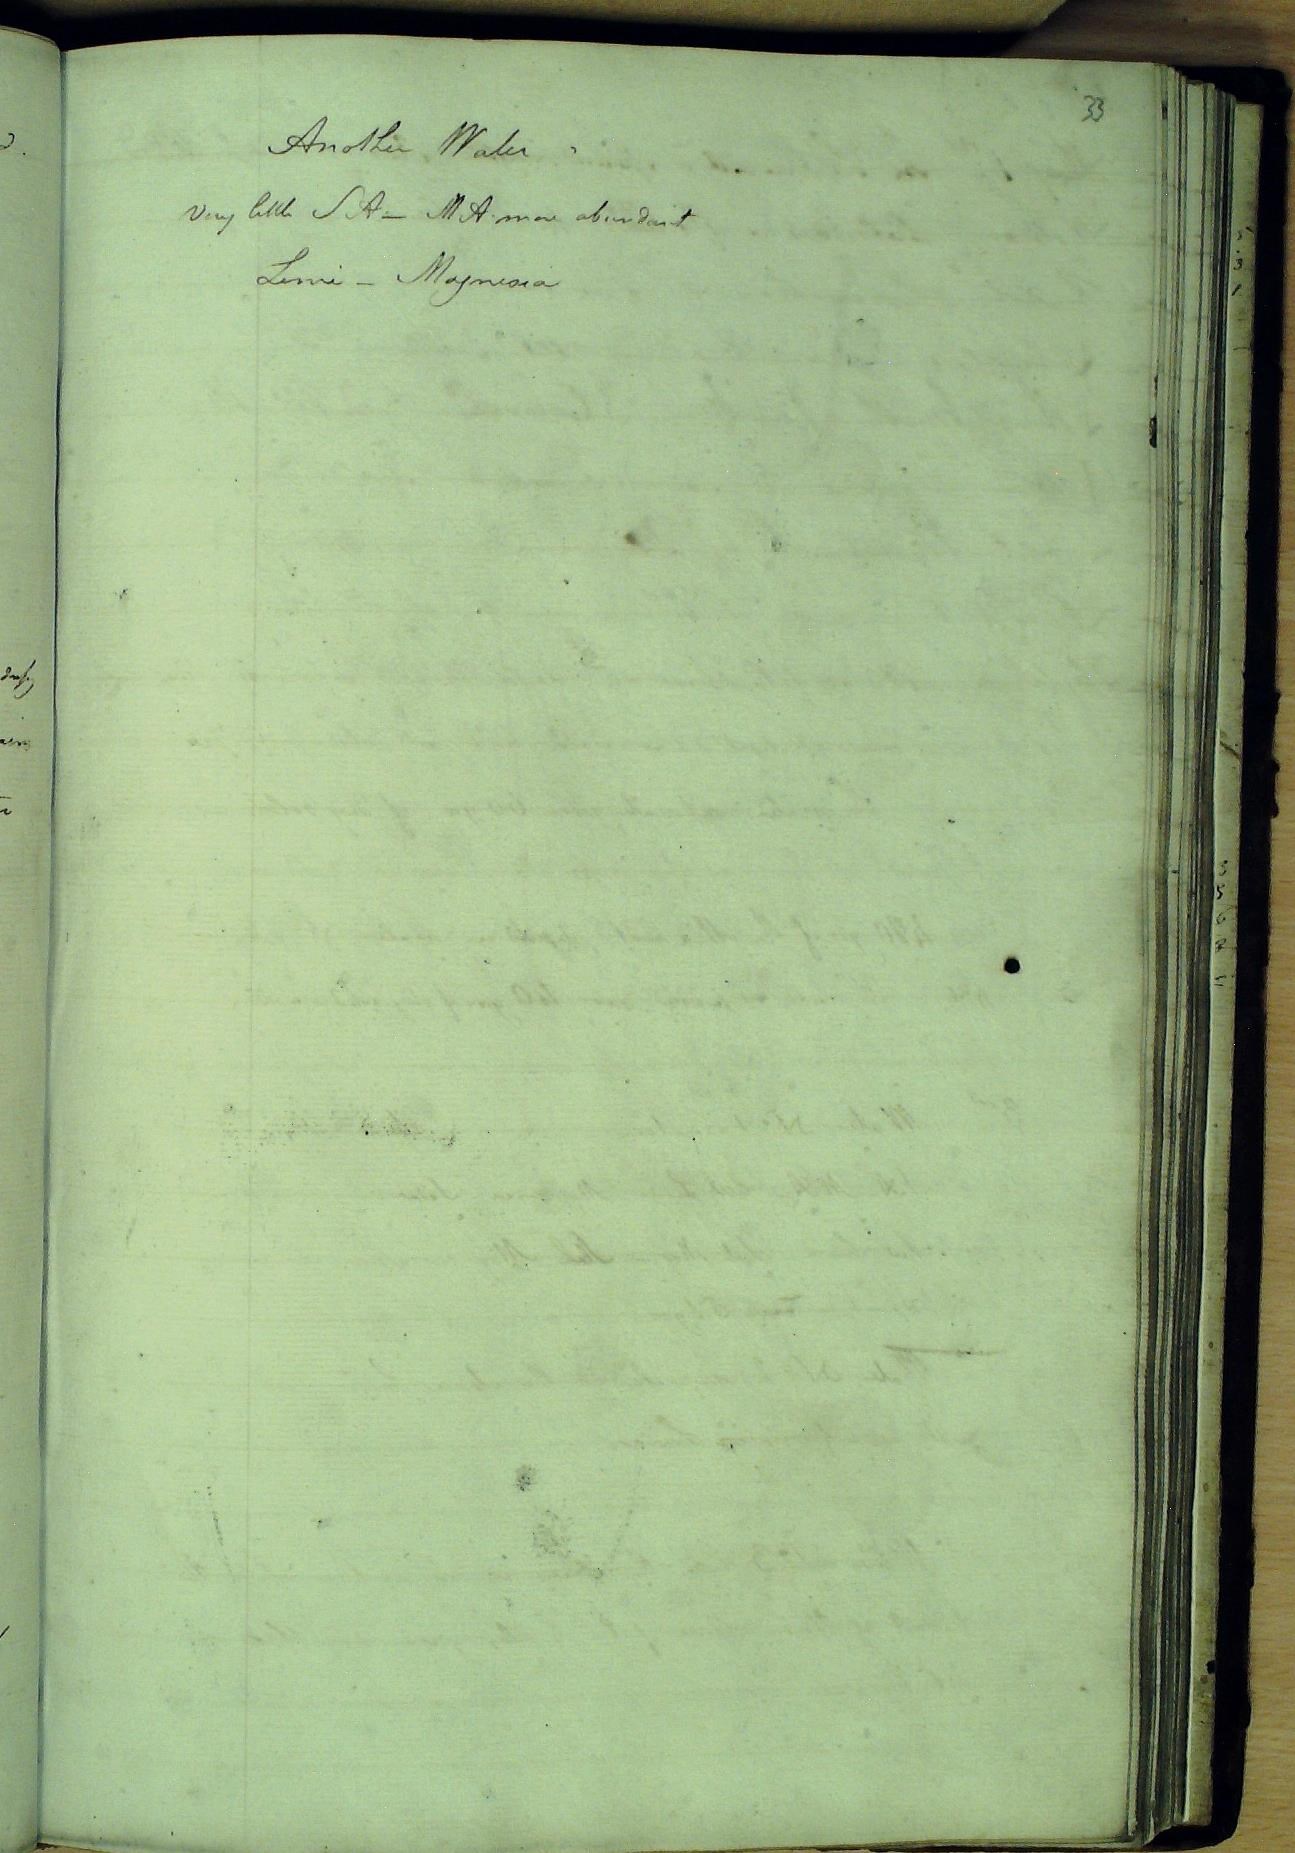 33
Another Water
Very little SA – MA. more abundant
Lime – Magnesia